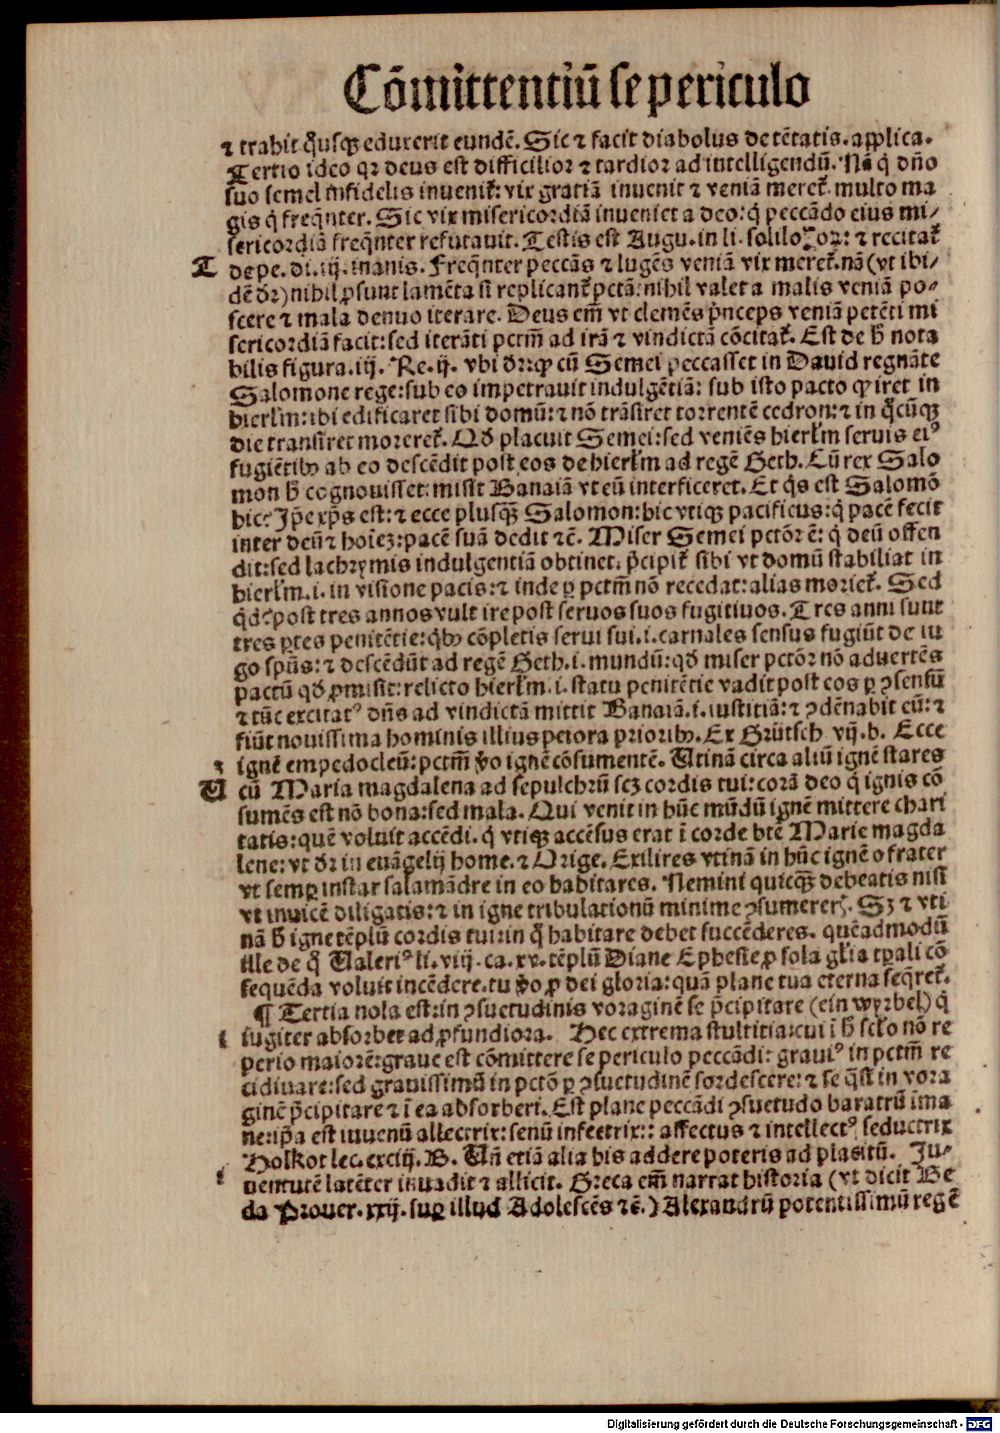 Cōmittentiū se periculo
⁊ trahit q̄usqꝫ eduxerit eundē. Sic ⁊ facit diabolus de tētatis. applica.
Tertio ideo qꝛ deus est difficilior ⁊ tardior ad intelligendū. Nā q̇ dn̄o
suo semel infidelis inuenit᷑: vix gratiā inuenit ⁊ veniā meret᷑. multo ma
gis q̇ freq̄nter. Sic vix misericordiā inueniet a deo: q̇ peccādo eius mi⸗
sericordiā freq̄nter refutauit. Testis est Augu. in li. soliloꝝꝛ: ⁊ recitat᷑
T de pe. di. iij. inanis. Freq̄nter peccās ⁊ lugēs veniā vix meret᷑. nā (vt ibi⸗
dē dꝛ) nihil ꝓsunt lamēta si replicant᷑ pctā: nihil valet a malis veniā po⸗
scere ⁊ mala denuo iterare. Deus em̄ vt clemēs p̄nceps veniā petēti mi
sericordiā facit: sed iterāti pctm̄ ad irā ⁊ vindictā cōcitat᷑. Est de h̄ nota
bilis figura. iij. Re. ij. vbi dꝛ: ꝙ cū Semei peccasset in Dauid regnāte
Salomone rege: sub eo impetrauit indulgētiā: sub isto pacto ꝙ iret in
hierl̄m: ibi edificaret sibi domū: ⁊ nō trāsiret torrentē cedron: ⁊ in q̄cūqꝫ
die transiret moreret᷑. Qđ placuit Semei: sed veniēs hierl̄m seruis eiꝰ
fugiētibꝫ ab eo descēdit post eos de hierl̄m ad regē Geth. Cū rex Salo
mon h̄ cognouisset: misit Banaiā vt eū interficeret. Et q̇s est Salomō
hic? Ip̄e xp̄s est: ⁊ ecce plusqꝫ Salomon: hic vtiqꝫ pacificus: q̇ pacē fecit
inter deū ⁊ hoīeꝫ: pacē suā dedit ⁊c̄. Miser Semei pctōr ē: q̇ deū offen
dit: sed lachrymis indulgentiā obtinet. p̄cipit᷑ sibi vt domū stabiliat in
hierl̄m. i. in visione pacis: ⁊ inde ꝑ pctm̄ nō recedat: alias moriet᷑. Sed
q̇d? post tres annos vult ire post seruos suos fugitiuos. Tres anni sunt
tres ꝑtes penitētie: q̇bꝫ cōpletis serui sui. i. carnales sensus fugiūt de iu
go spūs: ⁊ descēdūt ad regē Geth. i. mundū: qđ miser pctōr nō aduertēs
pactū qđ ꝓmisit: relicto hierl̄m. i. statu penitētie vadit post eos ꝑ ↄsensū
⁊ tūc excitatꝰ dn̄s ad vindictā mittit Banaiā. i. iustitiā: ⁊ ↄdēnabit eū: ⁊
fiūt nouissima hominis illius peiora prioribꝫ. Ex Grütsch vij. b. Ecce
ꝫ ignē empedocleū: pctm̄ ꝟo ignē cōsumentē. Utinā circa aliū ignē stares
U cū Maria magdalena ad sepulchrū scꝫ cordis tui: corā deo q̇ ignis cō
sumēs est nō bona: sed mala. Qui venit in hūc mūdū ignē mittere chari
tatis: quē voluit accēdi. q̇ vtiqꝫ accēsus erat ī corde btē Marie magda
lene: vt dꝛ in euāgelij home. ⁊ Orige. Exilires vtinā in hūc ignē o frater
vt semꝑ instar salamādre in eo habitares. Nemini quicqꝫ debeatis nisi
vt inuicē diligatis: ⁊ in igne tribulationū minime ↄsumereris. Sꝫ ⁊ vti
nā h̄ igne tēplū cordis tui: in q̊ habitare debet succēderes. quēadmodū
ille de q̊ Ualeriꝰ li. viij. ca. xv. tēplū Diane Ephesie ꝓ sola gl̄ia tꝑali cō
sequēda voluit incēdere. tu ꝟo ꝓ dei gloria: quā plane tua eterna seq̄ret᷑.
¶ Tertia nola est: in ↄsuetudinis voraginē se p̄cipitare (ein wyrbel) q̇
ſ iugiter absorbet ad ꝓfundiora. Hec extrema stultitia: cui ī h̄ sclo nō re
perio maiorē: graue est cōmittere se periculo peccādi: grauiꝰ in pctm̄ re
cidiuare: sed grauissimū in pctō ꝑ ↄsuetudinē sordescere: ⁊ se q̄si in vora
ginē p̄cipitare ⁊ ī ea absorberi. Est plane peccādi ↄsuetudo baratrū ima
ne: ip̄a est iuuenū allectrix: senū infectrix:: affectus ⁊ intellectꝰ seductrix
Holkot lec. exciij. B. Uñ etiā alia his addere poteris ad placitū. Ju⸗
ſ uentutē latēter inuadit ⁊ allicit. Greca em̄ narrat historia (vt dicit Be
da Prouer. xxij. suꝑ illud Adolescēs ⁊c̄.) Alexandrū potentissimū regē
Digitalisierung gefördert durch die Deutsche Forschungsgemeinschaft - DFG